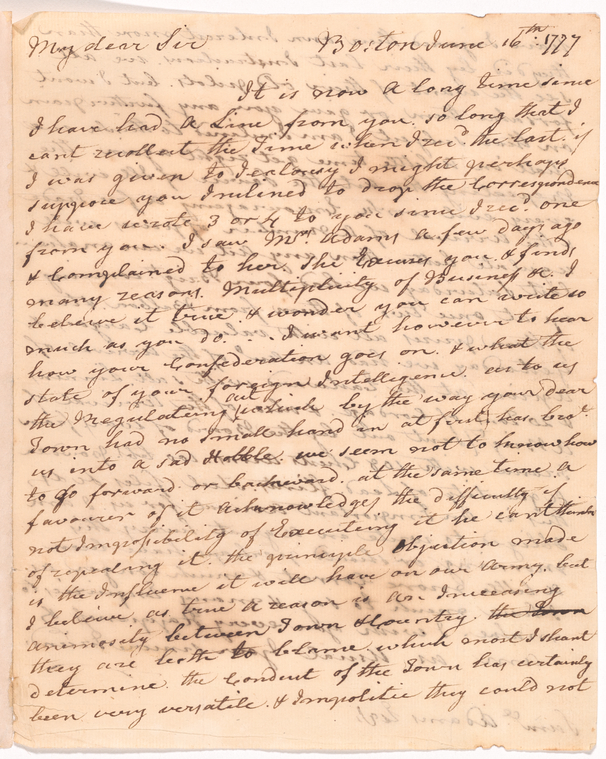 My dear Sir Boston June 16th. 1777
It is now a long time since
I have had a Line from you. so long that I
cant recollect the time when I recd. the last. if
I was given to Jealousy I might perhaps
suppose you Inclined to drop the Correspondence
I have wrote 3 or 4 to you since I recd. one
from you. I saw Mrs. Adams a few days ago
& Complained to her. she Excuses you, & finds
many reasons. Multiplicity of Business &c. I
believe it true. & wonder you can write so
much as you do. . . I want however to hear
how your Confederation goes on. & what the
state of your foreign Intelligence. as to us
the Regulating act which by the way your dear
Town had no small hand in at first, has bro't.
us into a sad Hobble. we seem not to know how
to go forward or backward. at the same time a
favourer of it acknowledges the difficulty if
not Impossibility of Executing it he can't think
of repealing it. the principle objection made
is the Influence it will have on our Army, but
I believe, as true a reason is an Increasing
animosity between Town & Country. the Town
they are both to blame, which most I shant
determine. the Conduct of the Town has certainly
been very versatile. & Impolitic they could not